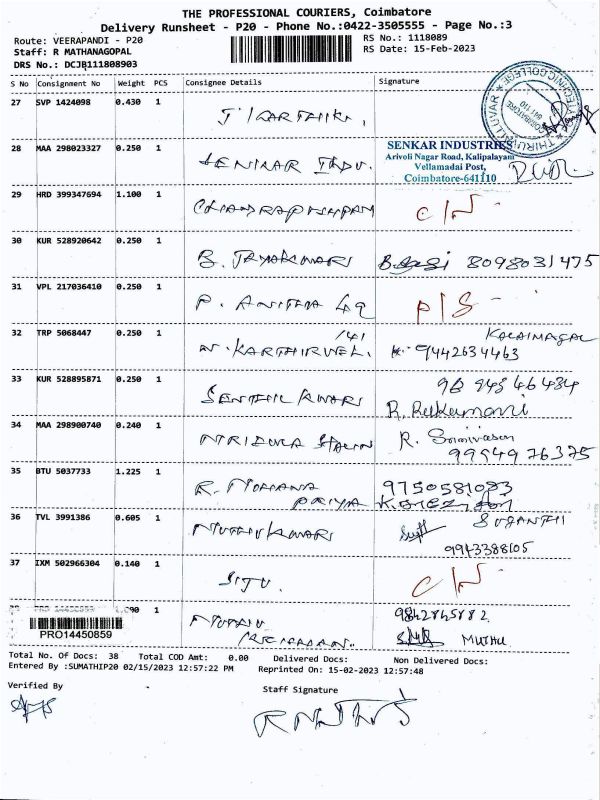 THE PROFESSIONAL COURIERS, Coimbatore
Delivery Runsheet - P20 - Phone No.:0422-3505555 - Page No.:3
Route: VEERAPANDI - P20
RS No.: 1118089
Staff: R MATHANAGOPAL
RS Date: 15-Feb-2023
DRS No.: DCJB111808903
S No Consignment No Weight PCS Consignee Details Signature
27 SVP 1424098 0.430 1
J KARTHIK,
THIRUVALLUVAR
COIMBATORE
641 110
28 MAA 298023327 0.250 1
SENKAR INDU.
SENKAR INDUSTRIES
Arivoli Nagar Road, Kalipalayam
Vellamadai Post,
Coimbatore-641110
29 HRD 399347694 1.100 1
CHANDRAPUSHPAM C/N
30 KUR 528920642 0.250 1
B. JAYAKUMARI 8098031475
31 VPL 217036410 0.250 1
P. ANITHA 49 P/S
32 TRP 5068447 0.250 1
/41 KALAIMAGAL
N. KARTHIKVEL. 9442634463
33 KUR 528895871 0.250 1
SENTHIL KUMARI
R. Rukumani
34 MAA 298900740 0.240 1
MRIDULA STALIN R. Srinivasan
35 BTU 5037733 1.225 1
R. MOHANA 9750581083
PRIYA
36 TVL 3991386 0.605 1
MUTHU KUMARI SUGANTHI
9943388105
37 IXM 502966304 0.140 1
SIJU. C/N
PRO 14450859 1
MUTHU 9842845882
PRO14450859
MUTHU
Total No. Of Docs: 38 Total COD Amt: 0.00 Delivered Docs: Non Delivered Docs:
Entered By :SUMATHIP20 02/15/2023 12:57:22 PM Reprinted On: 15-02-2023 12:57:48
Verified By
Staff Signature